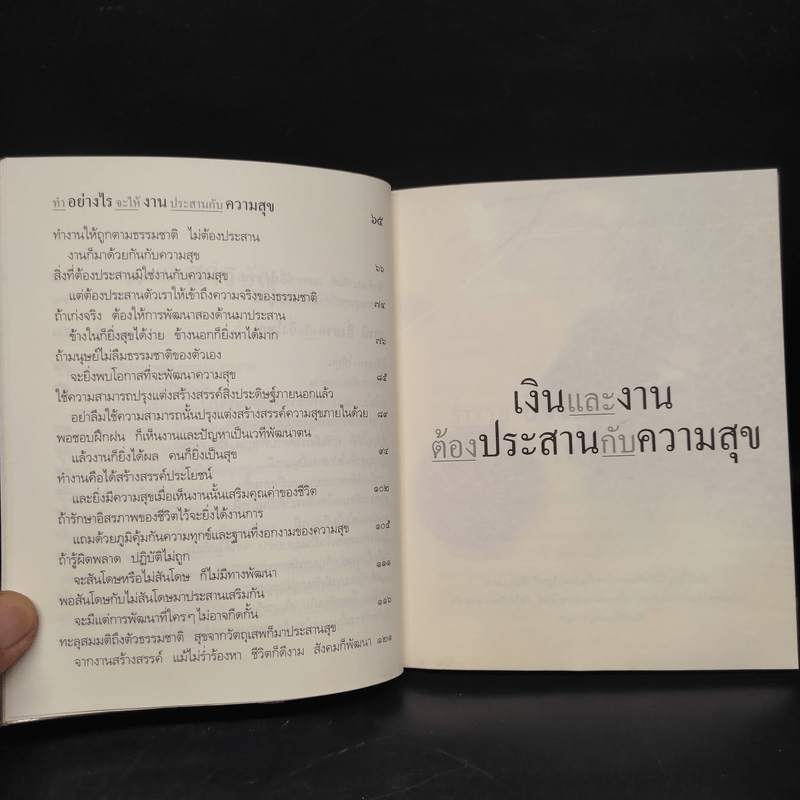 ทำอย่างไรจะให้งานประสานกับความสุข ๖๕
ทำงานให้ถูกตามธรรมชาติ ไม่ต้องประสาน
งานก็มาด้วยกันกับความสุข ๖๖
สิ่งที่ต้องประสานมิใช่งานกับความสุข
แต่ต้องประสานตัวเราให้เข้าถึงความจริงของธรรมชาติ ๗๔
ถ้าเก่งจริง ต้องให้การพัฒนาสองด้านมาประสาน
ข้างในก็ยิ่งสุขได้ง่าย ข้างนอกก็ยิ่งหาได้มาก ๗๖
ถ้ามนุษย์ไม่ลืมธรรมชาติของตัวเอง
จะยิ่งพบโอกาสที่จะพัฒนาความสุข ๘๕
ใช้ความสามารถปรุงแต่งสร้างสรรค์สิ่งประดิษฐ์ภายนอกแล้ว
อย่าลืมใช้ความสามารถนั้นปรุงแต่งสร้างสรรค์ความสุขภายในด้วย ๘๙
พอชอบฝึกฝน ก็เห็นงานและปัญหาเป็นเวทีพัฒนาตน
แล้วงานก็ยิ่งได้ผล คนก็ยิ่งเป็นสุข ๙๔
ทำงานคือได้สร้างสรรค์ประโยชน์
และยิ่งมีความสุขเมื่อเห็นงานนั้นเสริมคุณค่าของชีวิต ๑๐๒
ถ้ารักษาอิสรภาพของชีวิตไว้จะยิ่งได้งานการ
แถมด้วยภูมิคุ้มกันความทุกข์และฐานที่งอกงามของความสุข ๑๐๕
ถ้ารู้ผิดพลาด ปฏิบัติไม่ถูก
จะสันโดษหรือไม่สันโดษ ก็ไม่มีทางพัฒนา ๑๑๑
พอสันโดษกับไม่สันโดษมาประสานเสริมกัน
จะมีแต่การพัฒนาที่ใครๆ ไม่อาจกีดกั้น ๑๑๖
ทะลุสมมติถึงตัวธรรมชาติ สุขจากวัตถุเสพก็มาประสานสุข
จากงานสร้างสรรค์ แม้ไม่ร่ำร้องหา ชีวิตก็ดีงาม สังคมก็พัฒนา ๑๒๑
เงินและงาน
ต้องประสานกับความสุข